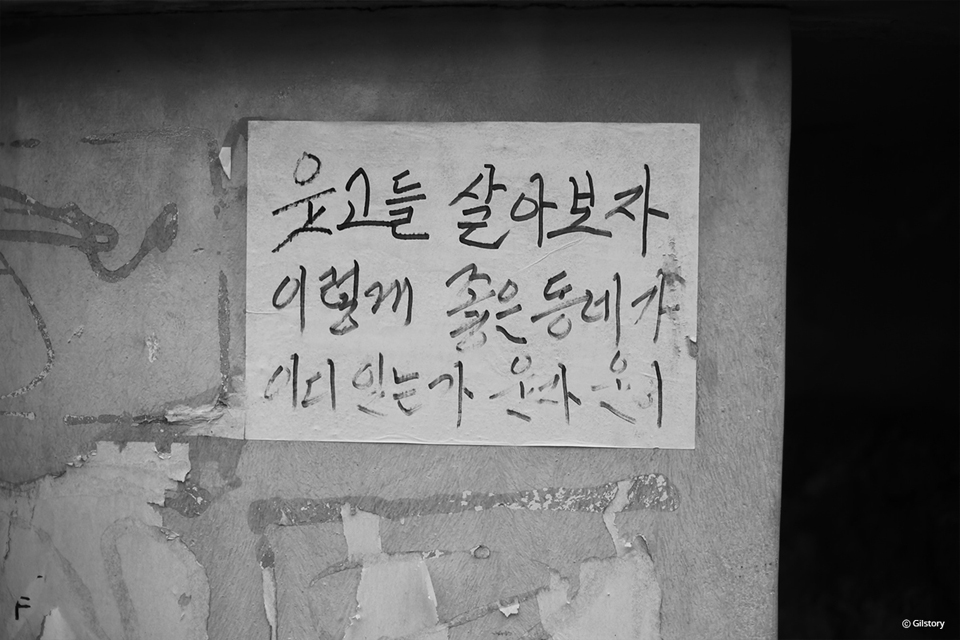 웃고들 살아보자
이렇게 좋은동네가
어디 있는가
F
© Gilstory